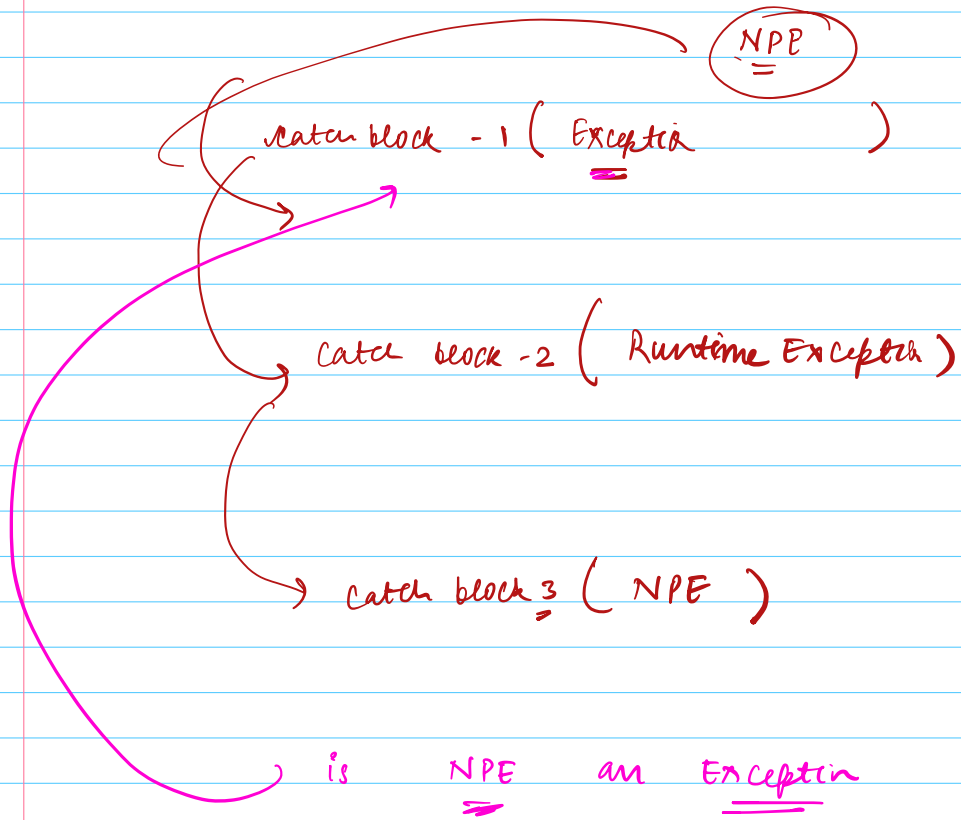 NPE
catch block - 1 ( Exception )
catch block - 2 ( Runtime Exception )
catch block 3 ( NPE )
is NPE an Exception